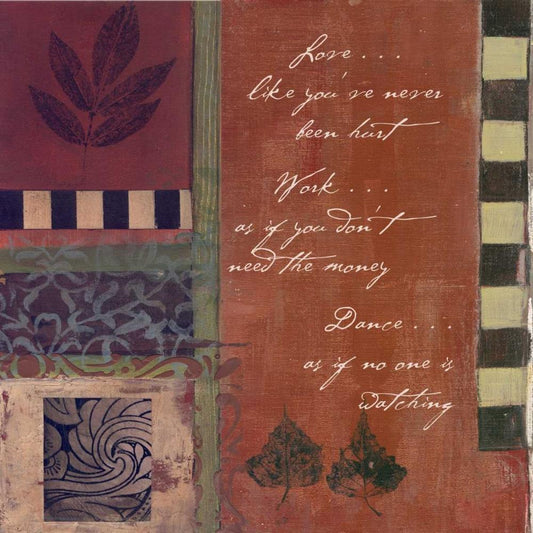 Love . . .
like you've never
been hurt
Work . . .
as if you don't
need the money
Dance . . .
as if no one is
watching